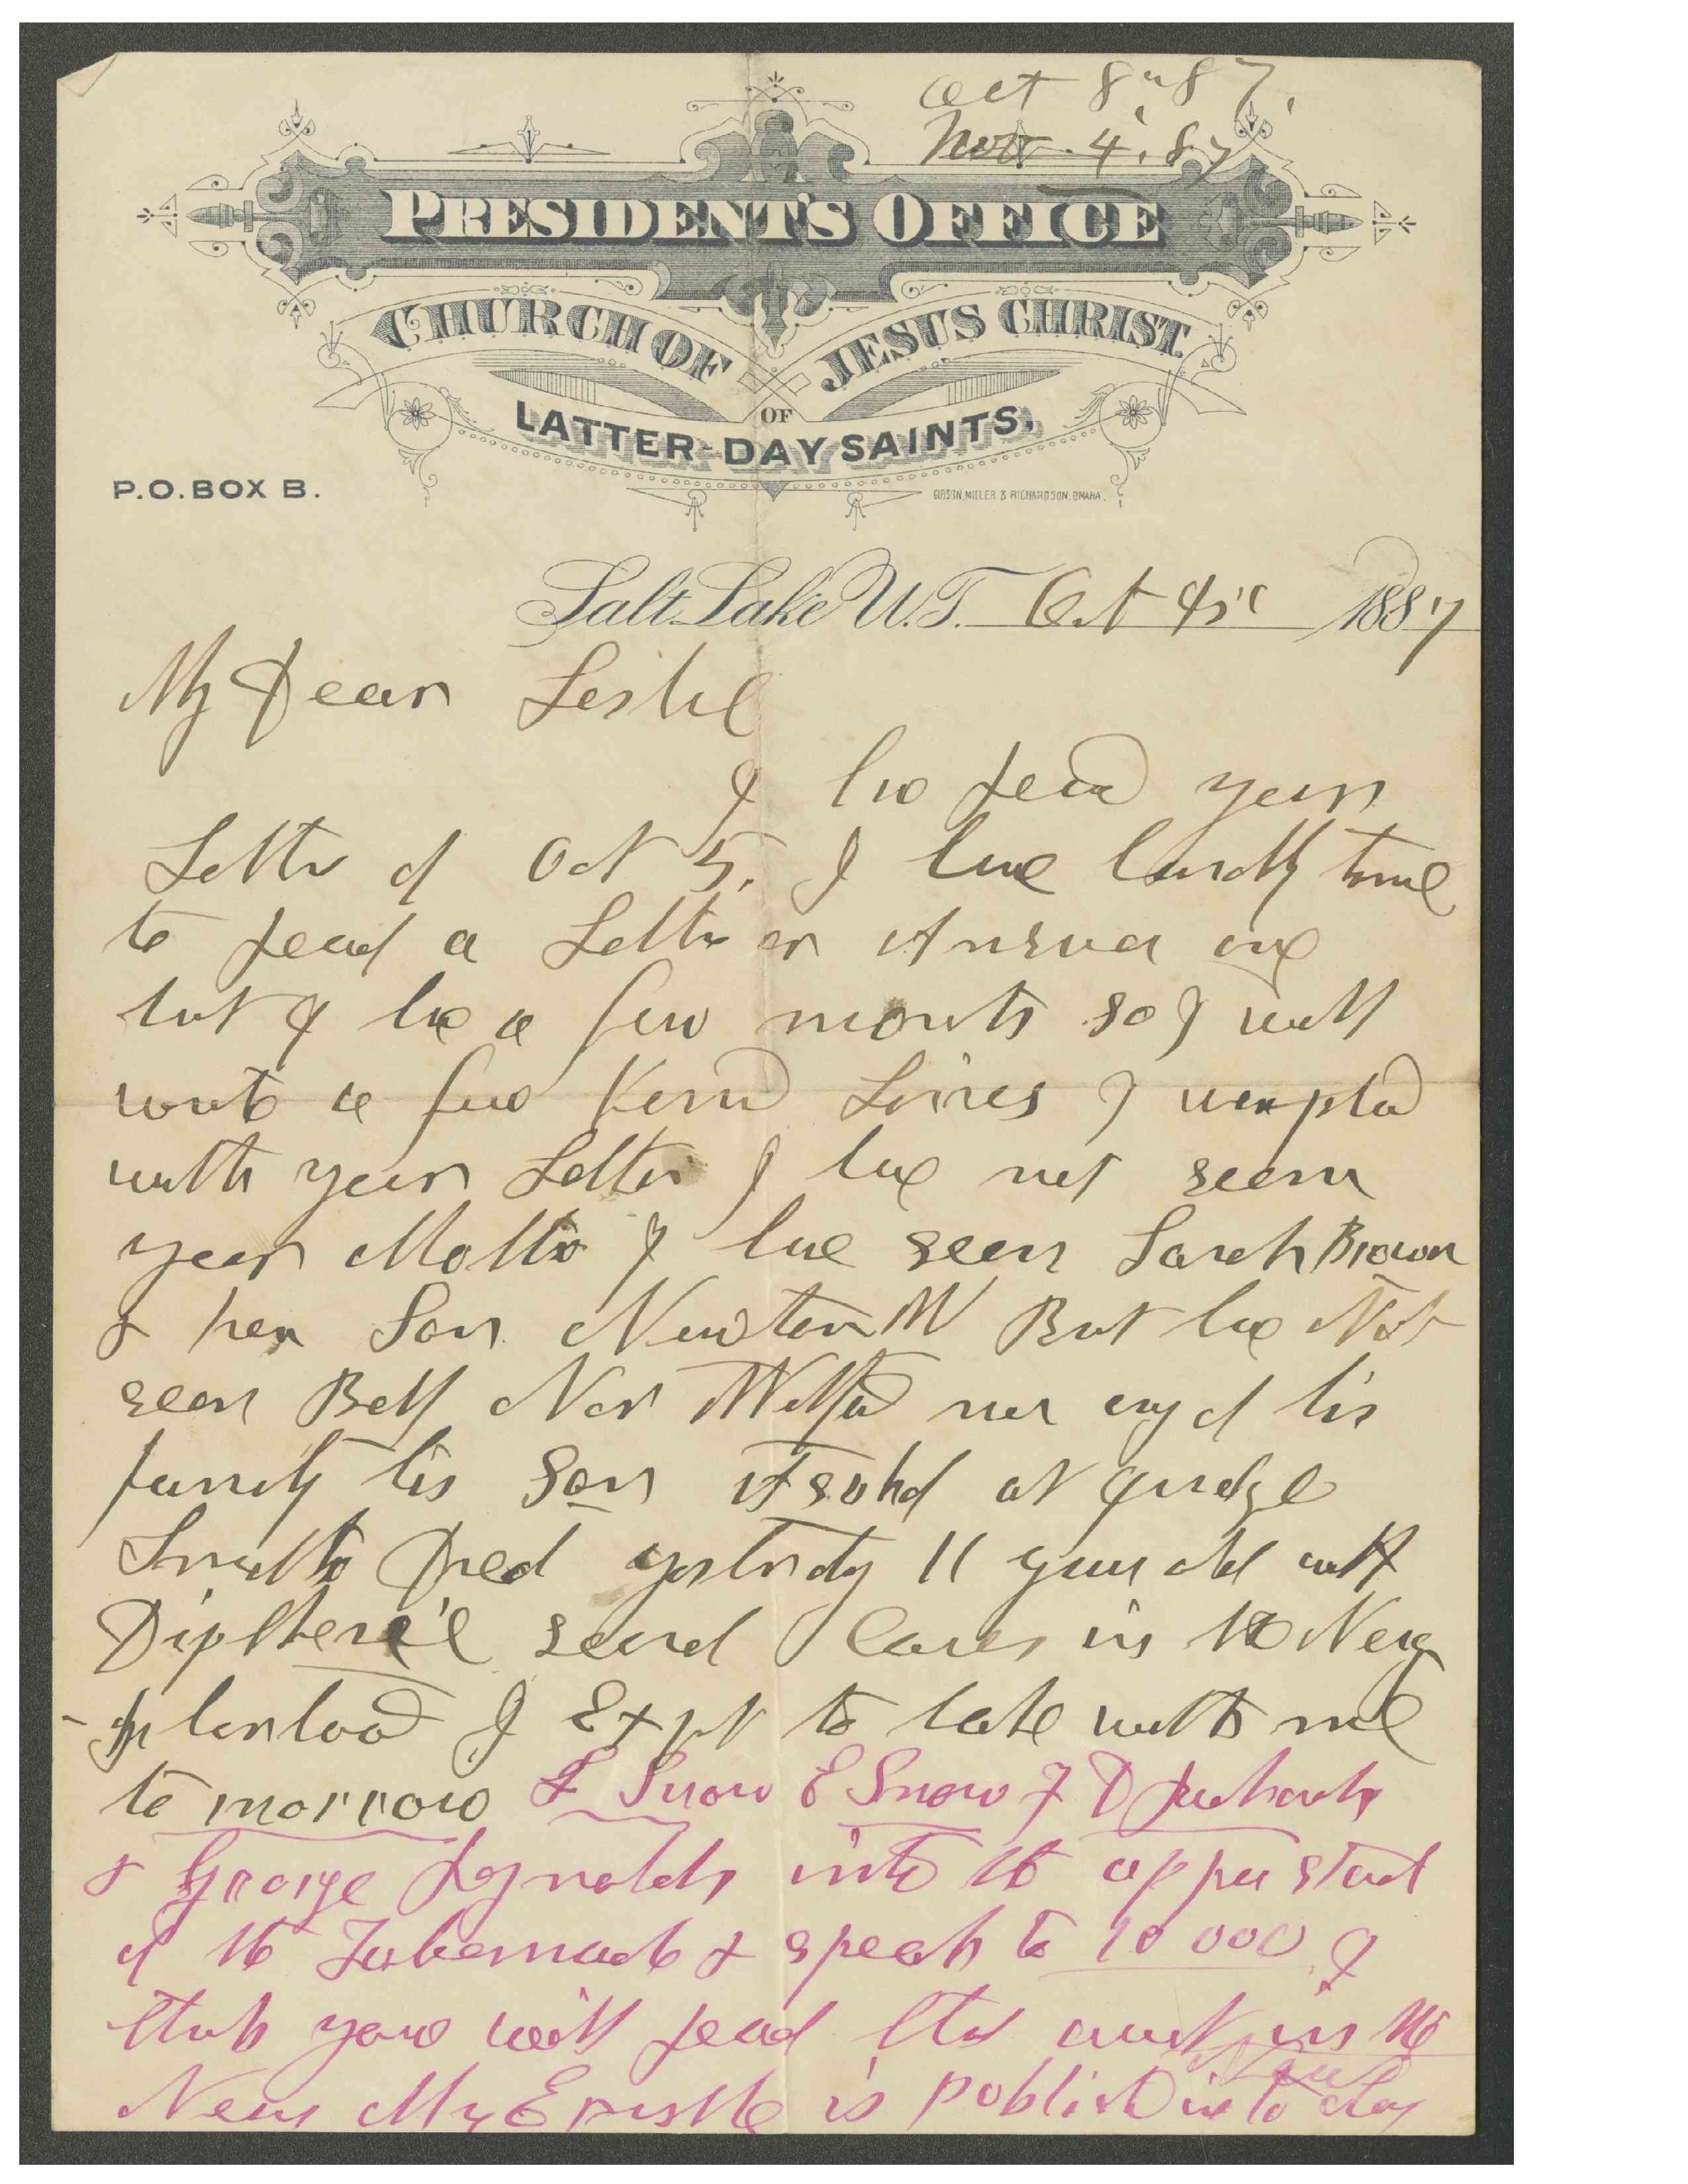 Oct 8" 87.
Nov. 4, 87
PRESIDENT'S OFFICE
CHURCH OF JESUS CHRIST
OF
LATTER-DAY SAINTS.
P.O. BOX B.
GIBSON, MILLER & RICHARDSON, OMAHA.
Salt Lake U.T. Oct 1887
My Dear Leslie
I have read your
Letter of Oct 5. I have hardly time
to read a Letter or Answer one
but I have a few moments so I will
write a few Lines I was pleased
with your Letter I have not seen
your Mother I have seen Sarah Brown
& her Son Newton W But have Not
seen Bell Nor Wilford nor any of his
family his son at Judge
Smiths Died yesterday 11 years old with
Diptheria several Cases in the Neig
-hborhood I Expt to take with me
to morrow L Snow E Snow F D Richards
& George Reynolds into the upper stand
of the Tabernacle & speak to 10000 I
think you will read the account in the
News My Epistle is published in to day